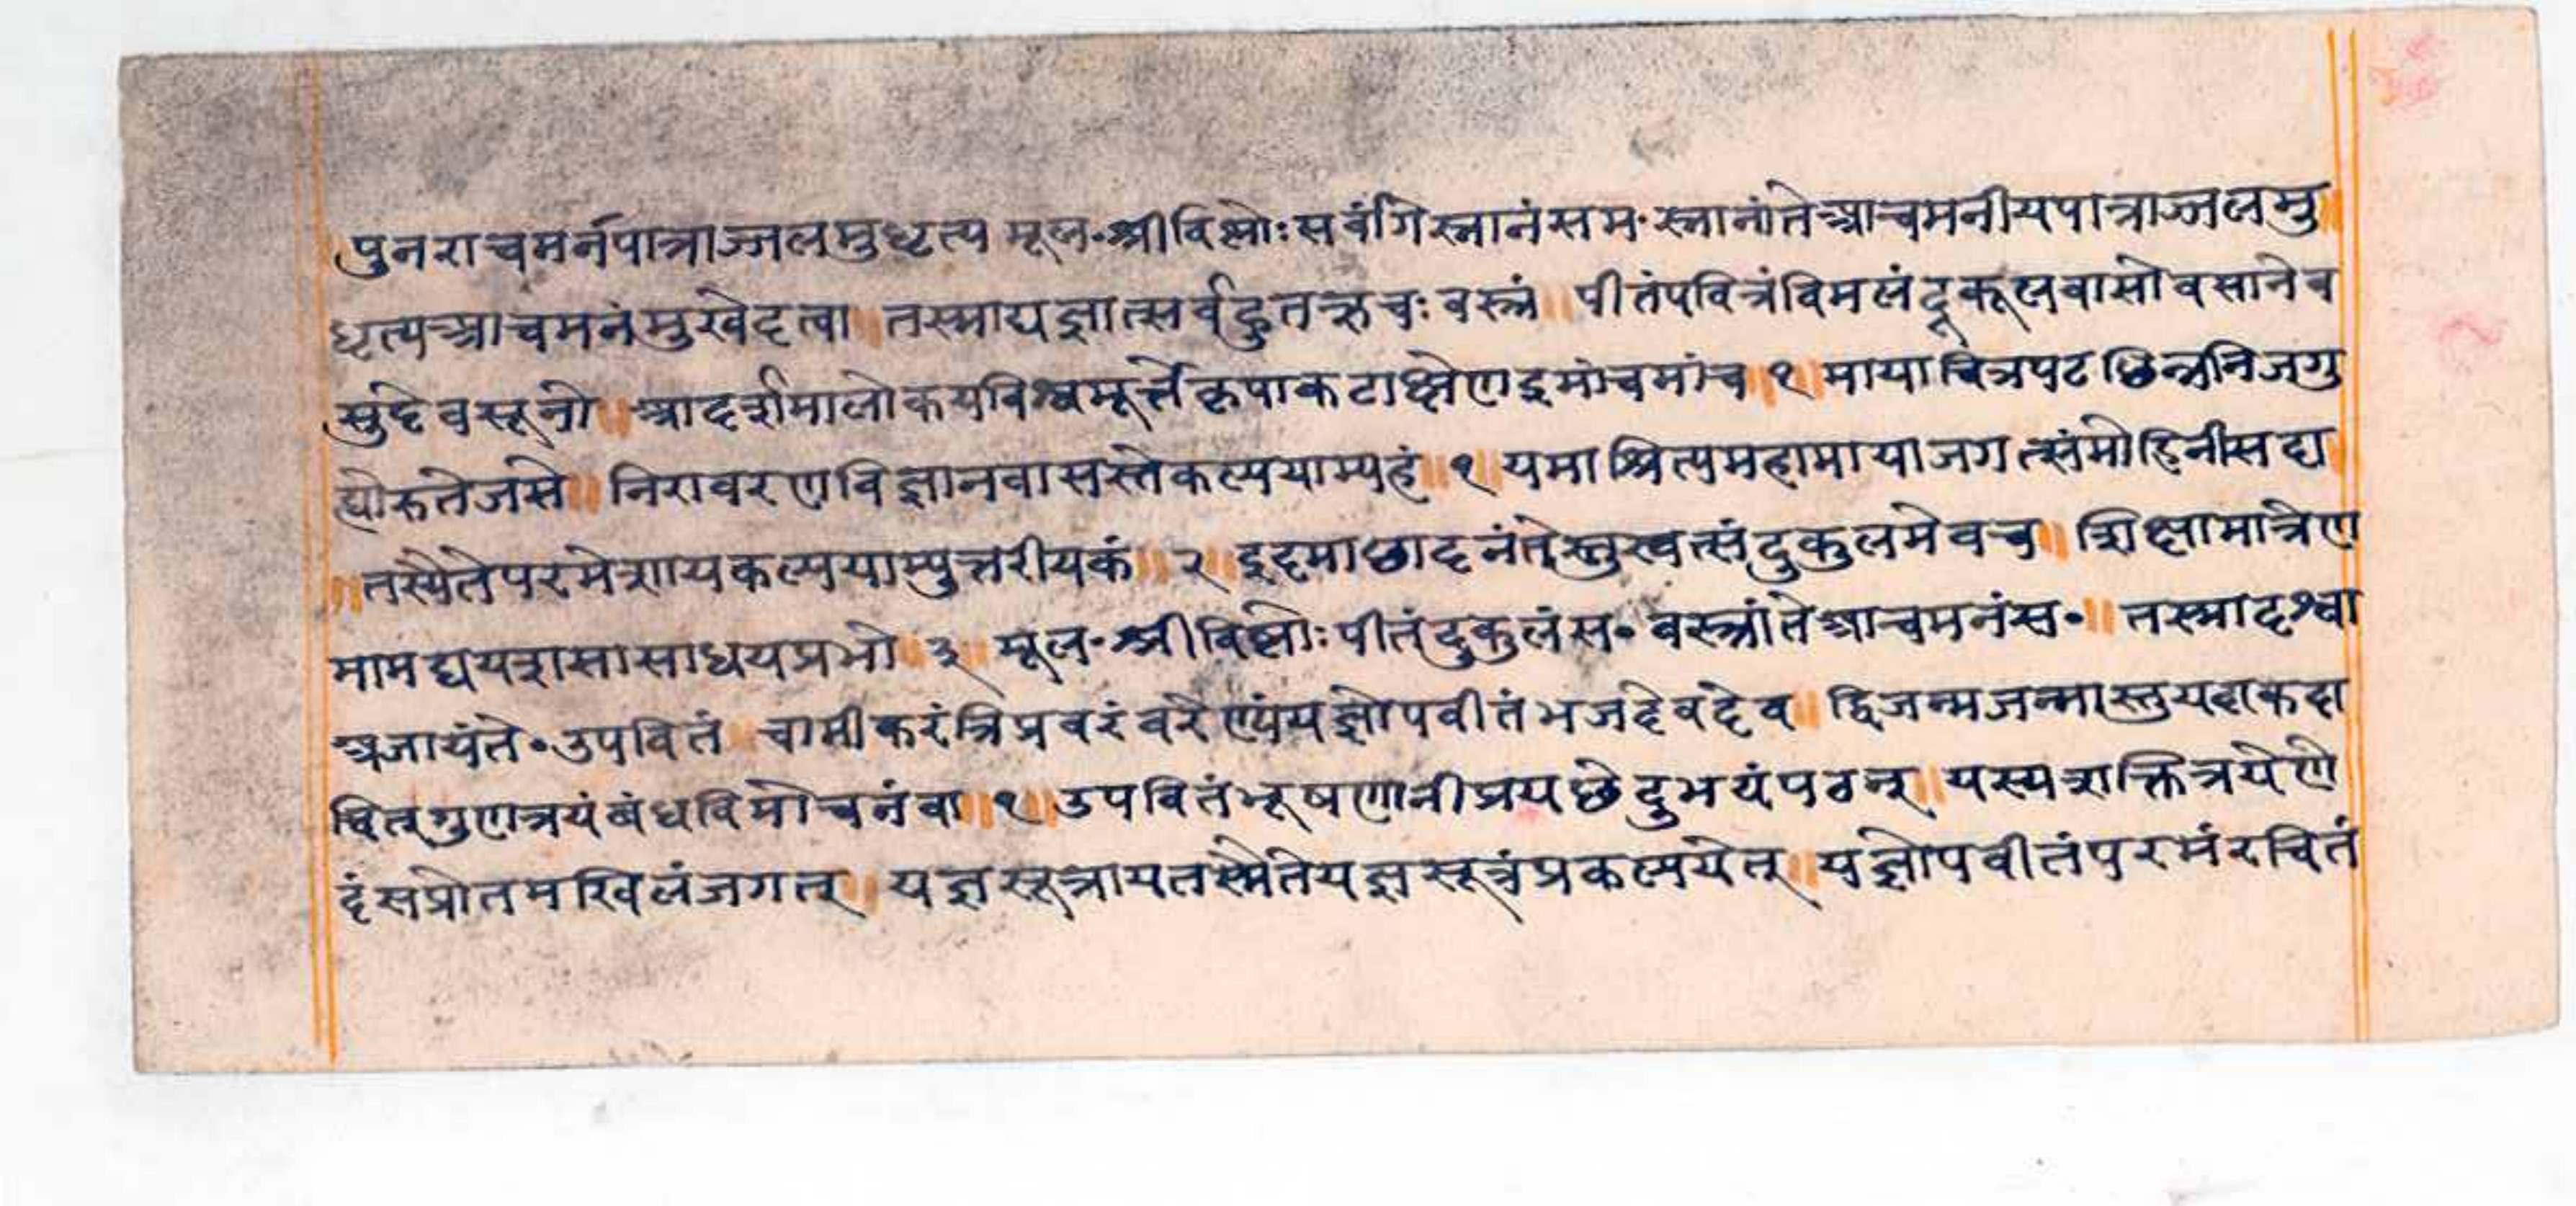 पुनराचमर्नपात्राज्जलमुधृत्य मूल॰श्रीविष्णोःसर्वंगिस्नानंसम॰स्नानांतेआचमनीयपात्राज्जलमु
धृत्यआचमनंमुखेदत्वा ॥ तस्माद्यज्ञात्सर्वहुतऋचः वस्त्रं ॥ पीतंपवित्रंविमलंदूकूलवासोवसानेव
सुदेवसूनो ॥ आदर्शमालोकयविश्वमूर्त्तेकृपाकटाक्षेणइमांचमांच ॥१॥ मायाचित्रपटछिन्ननिजगु
ह्योरुतेजसे ॥ निरावरणविज्ञानवासस्तेकल्पयाम्यहं ॥ १ यमाश्रित्यमहामायाजगत्संमोहिनीसदा
॥ तस्यैतेपरमेशायकल्पयाम्युत्तरीयकं ॥ २ ॥ इदमाछादनंतेस्तु दुकुलमेवच ॥ शिक्षामात्रेण
मामद्ययशसासाधयप्रभो ॥ ३ ॥ मूल॰श्रीविष्णोःपीतंदुकुलंस॰ वस्त्रांतेआचमनंस॰ ॥ तस्मादश्वा
अजायंते॰उपवितं ॥ चामीकरंत्रिप्रवरंवरेण्यंयज्ञोपवीतंभजदेवदेव ॥ द्विजन्मजन्मास्तुयदाकदा
चित्गुणत्रयंबंधविमोचनंवा ॥ १ ॥ उपवितंभूषणानीप्रयछेदुभयंपठन् ॥ यस्यशक्तित्रयेणे
दंसप्रोतमखिलंजगत् ॥ यज्ञसूत्रायतस्मैतेयज्ञसूत्रंप्रकल्पयेत् ॥ यज्ञोपवीतंपरमंरचितं